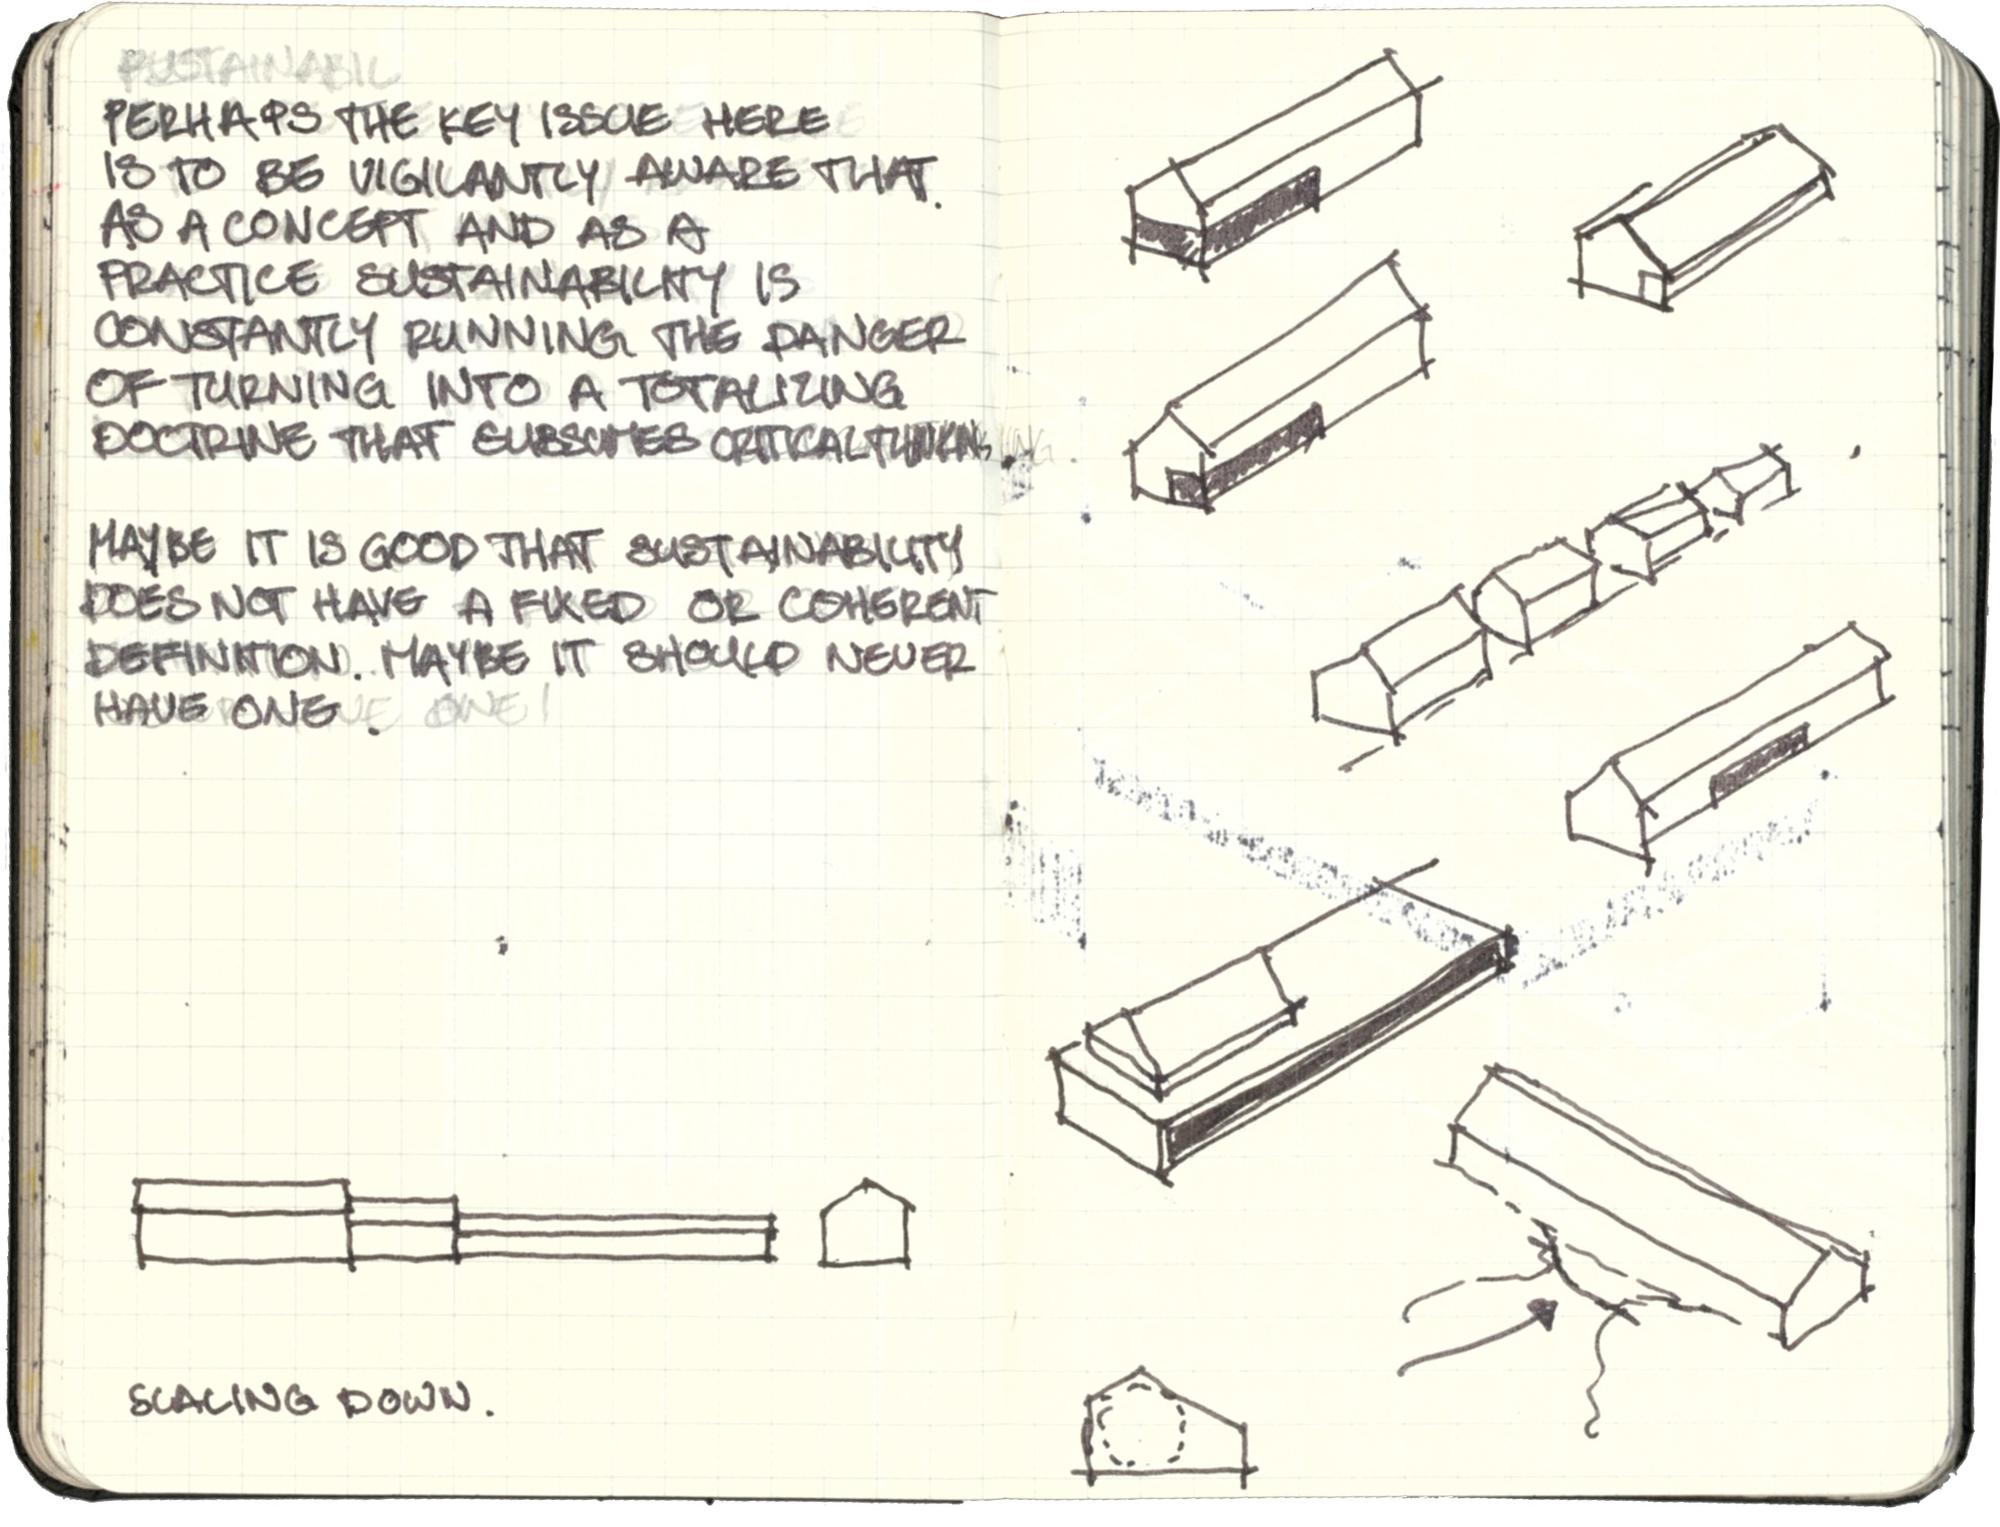 SUSTAINABIL
PERHAPS THE KEY ISSUE HERE
IS TO BE VIGILANTLY AWARE THAT
AS A CONCEPT AND AS A
PRACTICE SUSTAINABILITY IS
CONSTANTLY RUNNING THE DANGER
OF TURNING INTO A TOTALIZING
DOCTRINE THAT SUBSUMES CRITICAL THINKING
MAYBE IT IS GOOD THAT SUSTAINABILITY
DOES NOT HAVE A FIXED OR COHERENT
DEFINITION. MAYBE IT SHOULD NEVER
HAVE ONE.
SCALING DOWN.